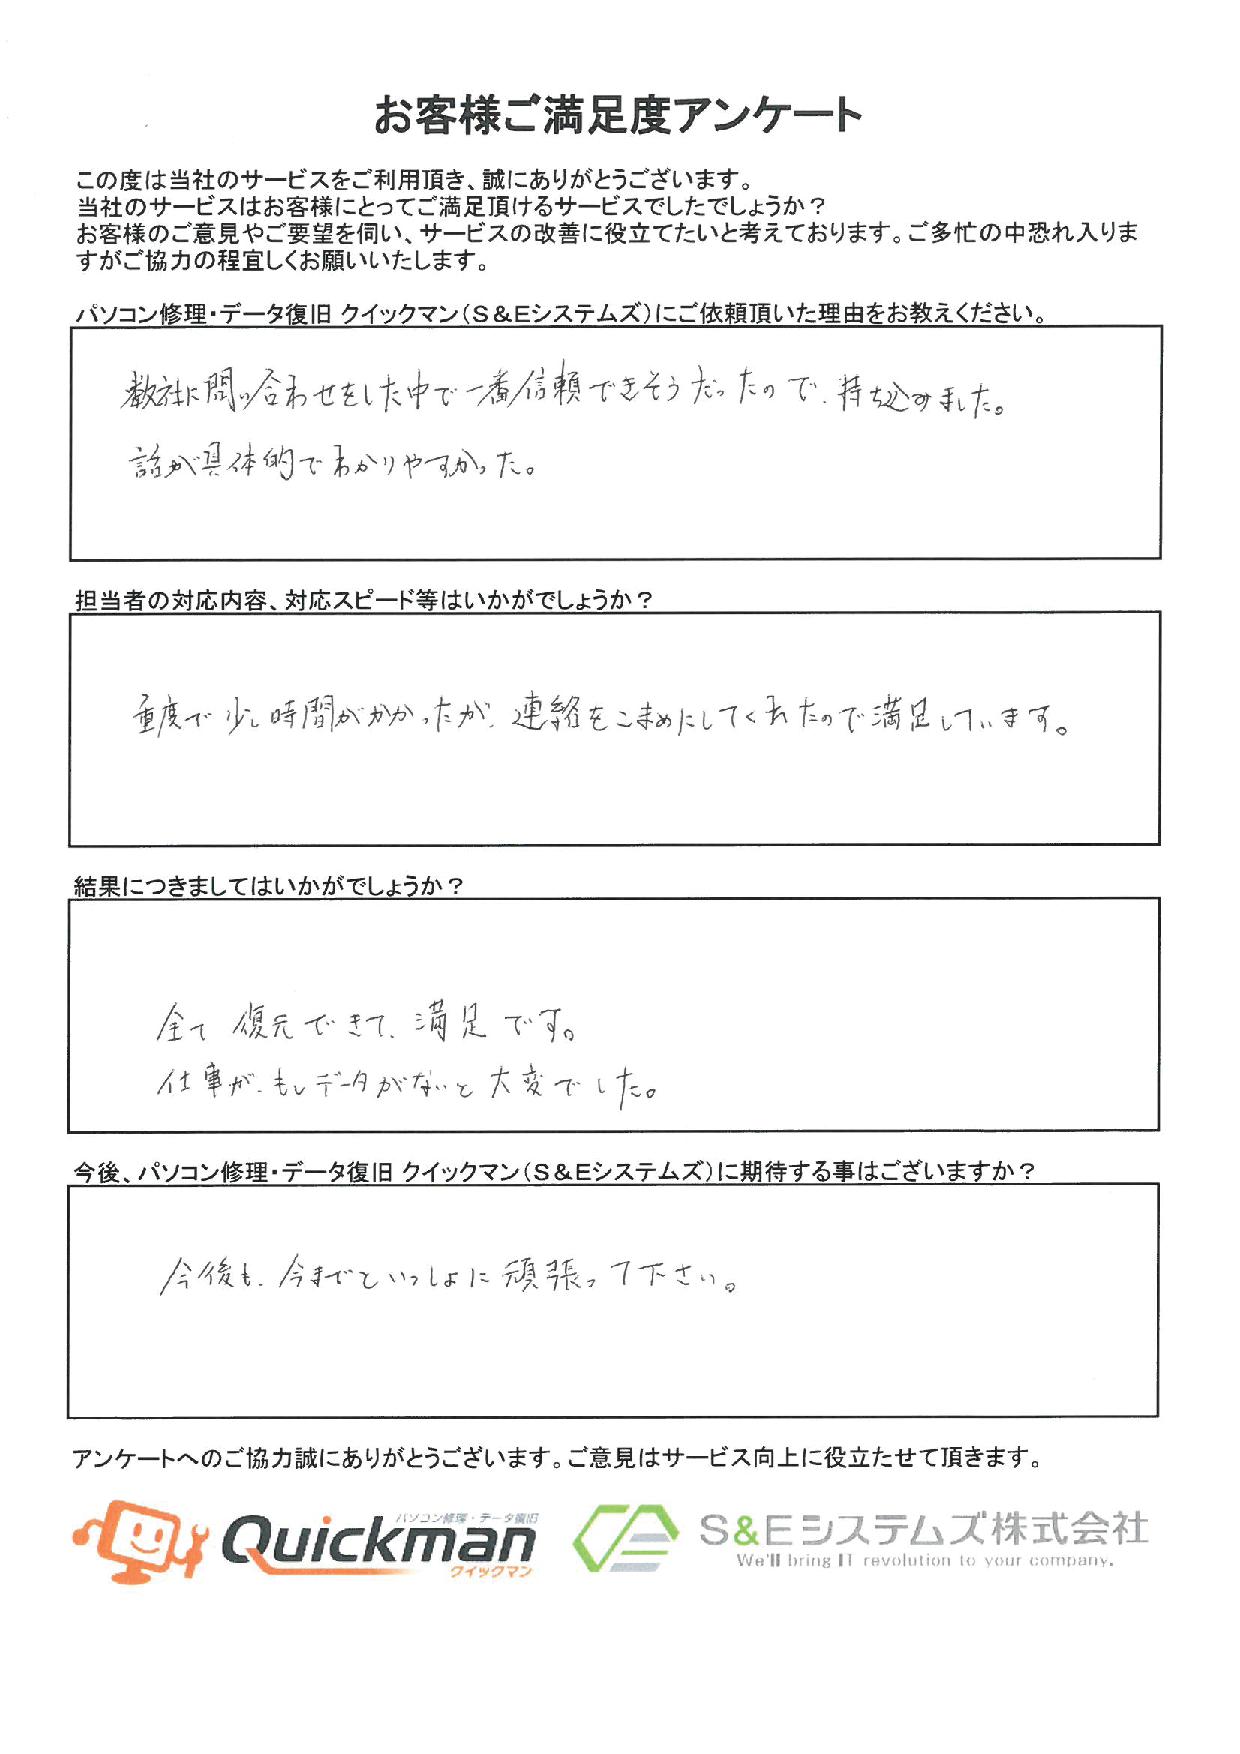 お客様ご満足度アンケート
この度は当社のサービスをご利用頂き、誠にありがとうございます。
当社のサービスはお客様にとってご満足頂けるサービスでしたでしょうか？
お客様のご意見やご要望を伺い、サービスの改善に役立てたいと考えております。ご多忙の中恐れ入りま
すがご協力の程宜しくお願いいたします。
パソコン修理・データ復旧 クイックマン（S＆Eシステムズ）にご依頼頂いた理由をお教えください。
数社に問い合わせをした中で一番信頼できそうだったので、持ち込みました。
話が具体的でわかりやすかった。
担当者の対応内容、対応スピード等はいかがでしょうか？
重度で少し時間がかかったが、連絡をこまめにしてくれたので満足しています。
結果につきましてはいかがでしょうか？
全て復元できて、満足です。
仕事が、もしデータがないと大変でした。
今後、パソコン修理・データ復旧 クイックマン（S＆Eシステムズ）に期待する事はございますか？
今後も、今までといっしょに頑張って下さい。
アンケートへのご協力誠にありがとうございます。ご意見はサービス向上に役立たせて頂きます。
パソコン修理・データ復旧
Quickman
クイックマン
S&Eシステムズ株式会社
We'll bring IT revolution to your company.